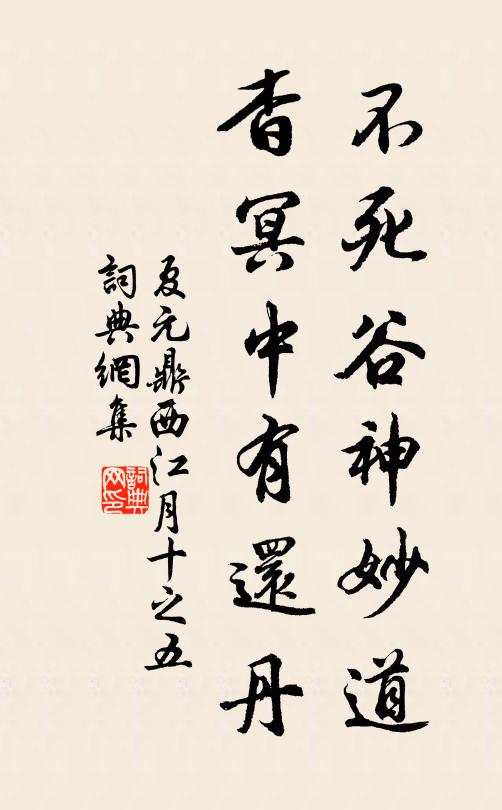 不死谷神妙道
杳冥中有還丹
夏元鼎西江月十之五
詞典網集
詞典网印